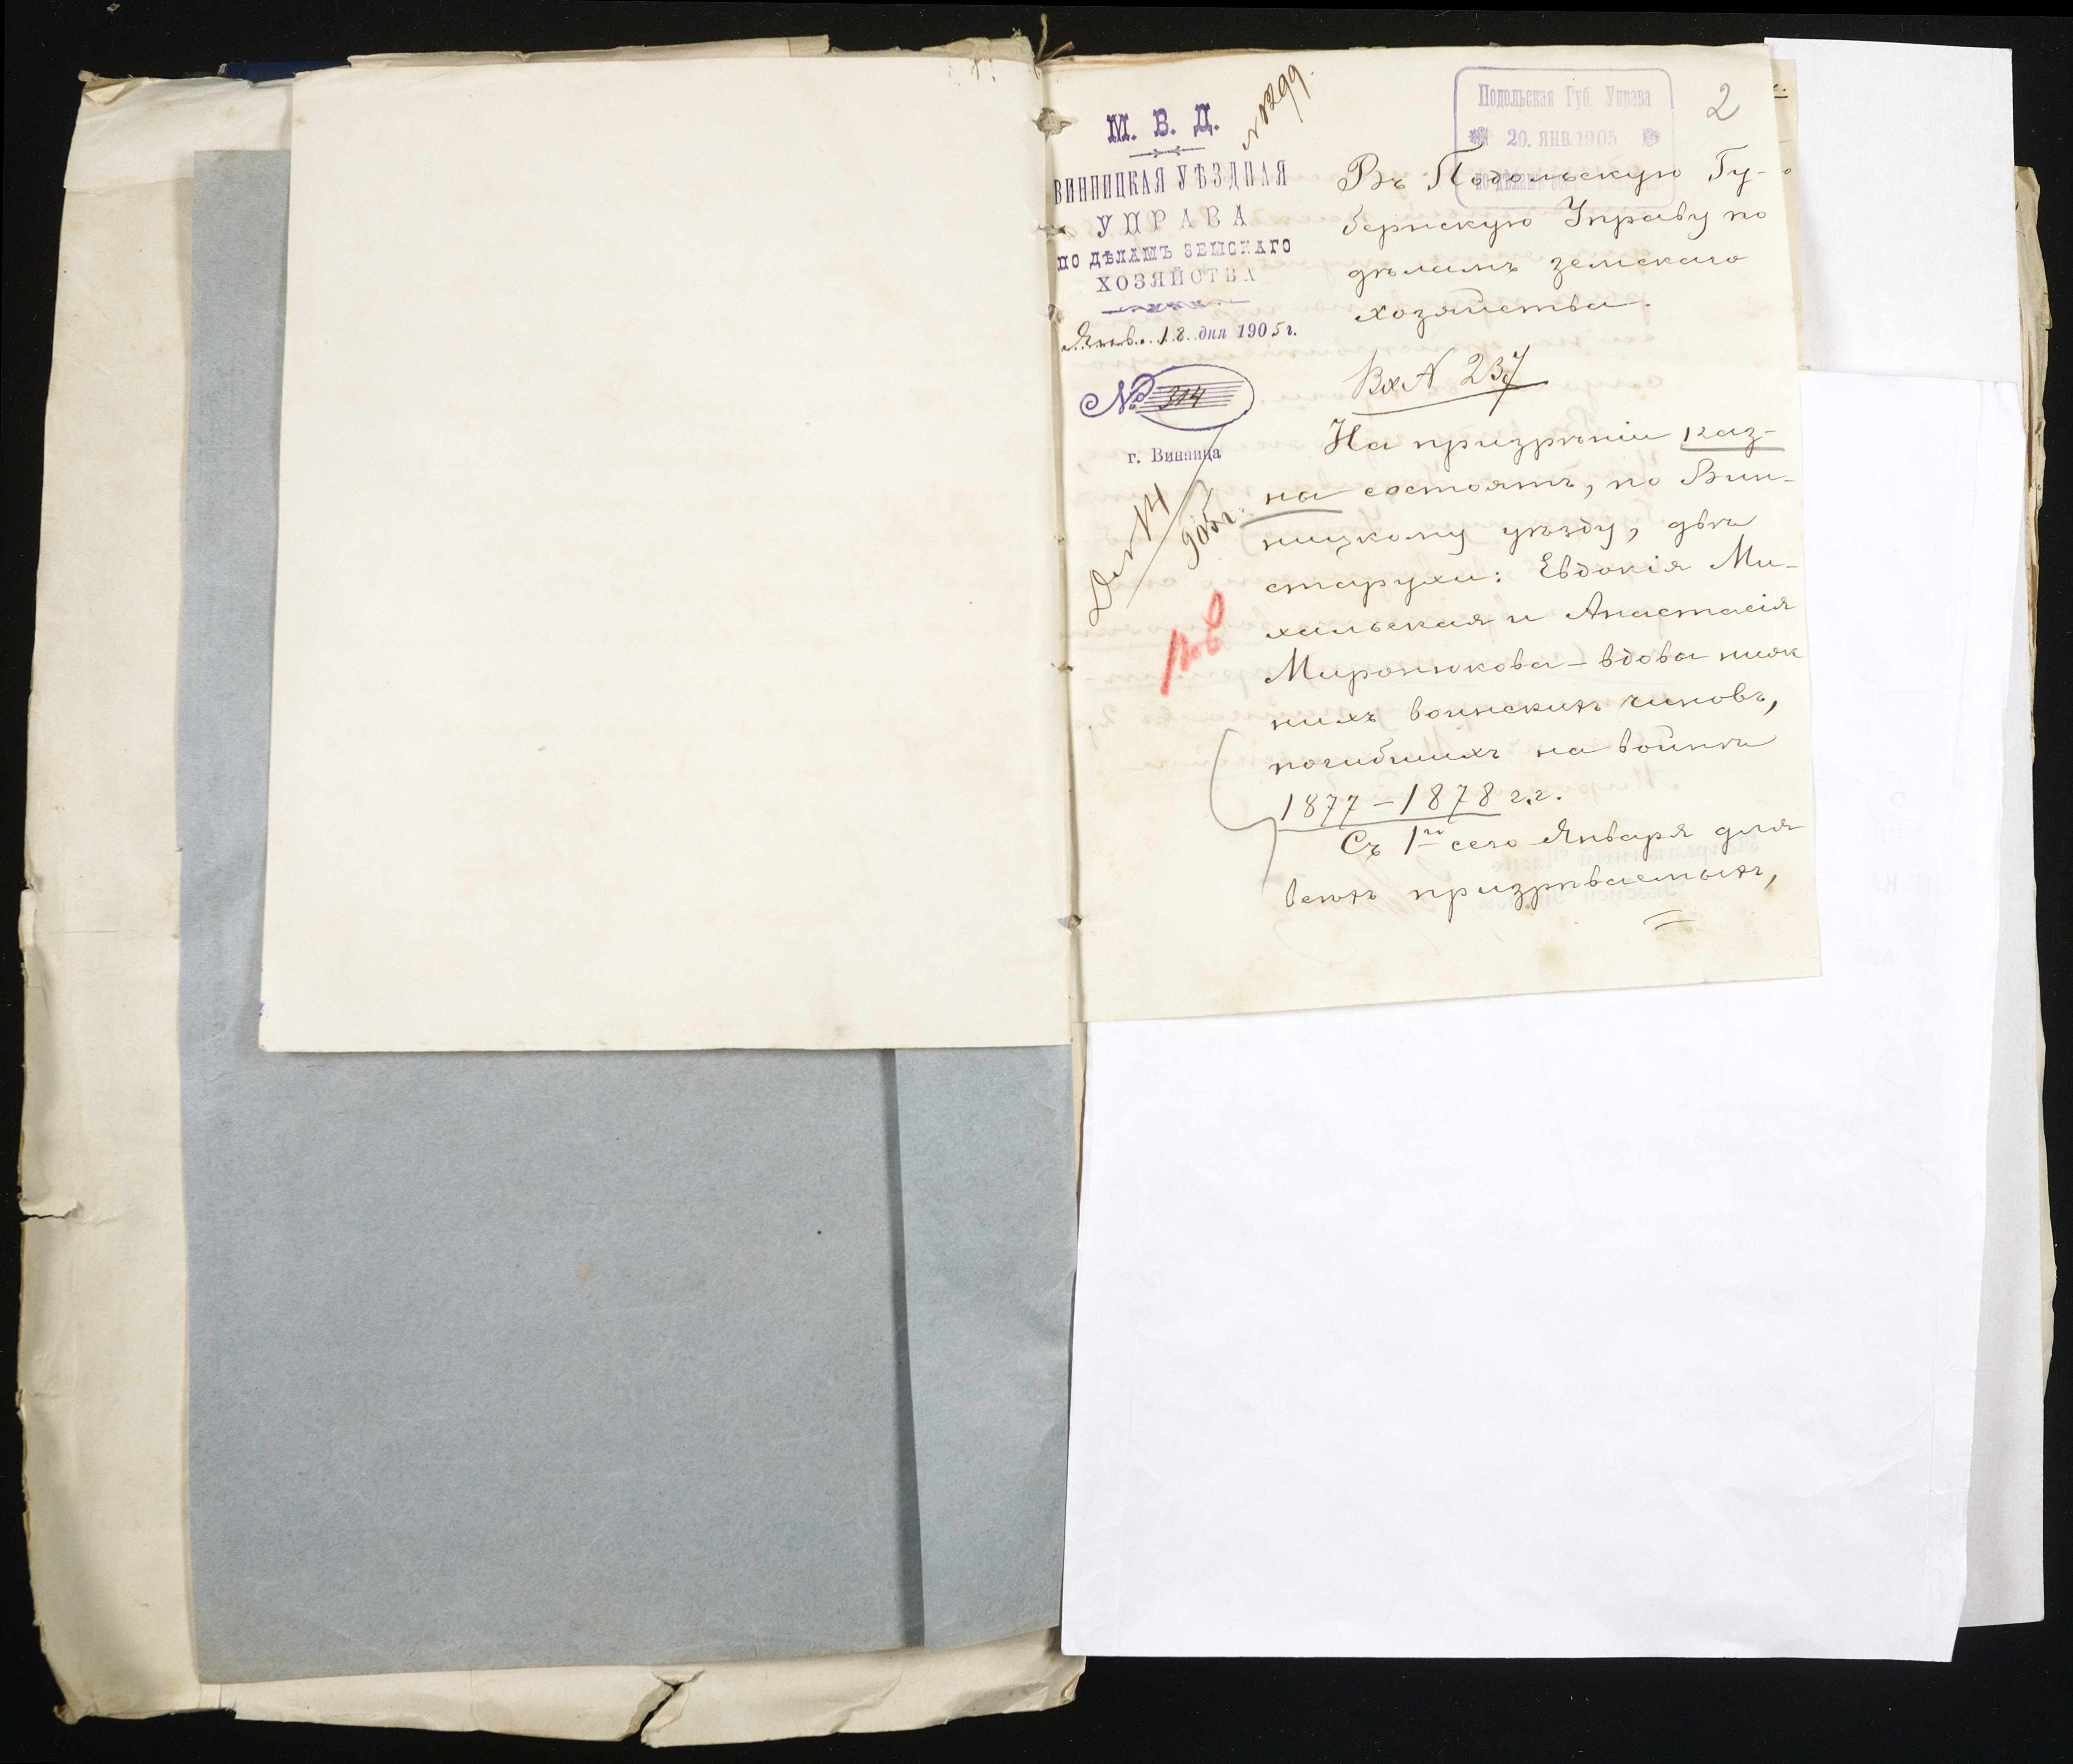 М. В. Д.
ВИННИЦКАЯ УѢЗДНАЯ
УПРАВА
ПО ДѢЛАМЪ ЗЕМСКАГО
ХОЗЯЙСТВА
Янв. 18 дня 1905 г.
№ 314
г. Винница
№ 1299.
Подольская Губ. Управа
20. ЯНВ. 1905
2
Въ Подольскую Гу-
бернскую Управу по
дѣламъ земскаго
хозяйства.
Вх № 237
На призрѣніи каз-
ны состоятъ, по Вин-
ницкому уѣзду, двѣ
старухи: Евдокія Ми-
хальская и Анастасія
Миронюкова – вдовы ниж
нихъ воинскихъ чиновъ,
погибшихъ на войнѣ
1877 – 1878 г.г.
Съ 1го сего Января для
всѣхъ призрѣваемыхъ,